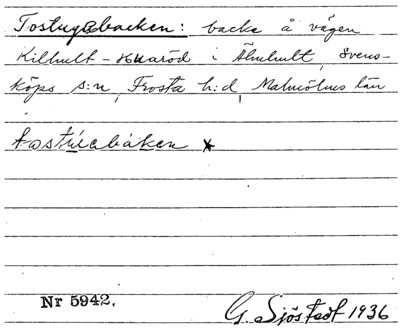 Tostugebacken: backe å vägen
Killhult - Huaröd i Älmhult, Svens-
köps s:n, Frosta h:d, Malmöhus län
Nr 5942.
G. Sjöstedt 1936